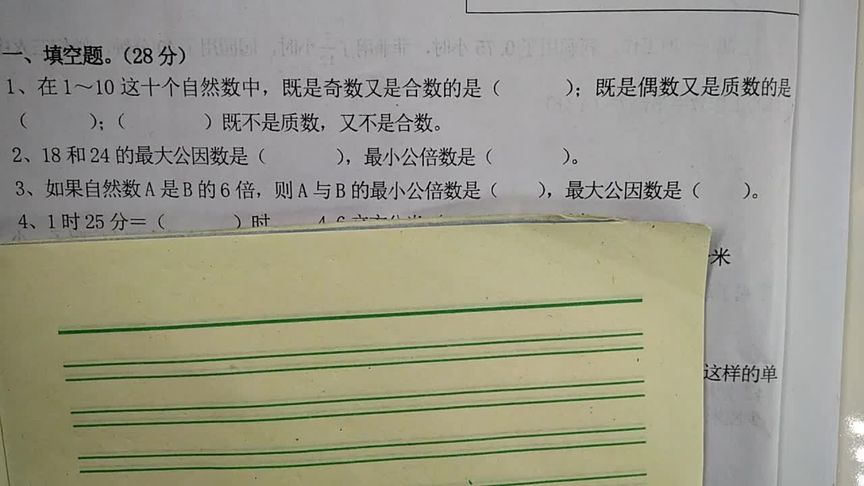 一、填空题。(28分)
1、在1～10这十个自然数中，既是奇数又是合数的是（　　）；既是偶数又是质数的是
（　　）；（　　）既不是质数，又不是合数。
2、18和24的最大公因数是（　　），最小公倍数是（　　）。
3、如果自然数A是B的6倍，则A与B的最小公倍数是（　　），最大公因数是（　　）。
4、1时25分＝（　　）时
米
这样的单